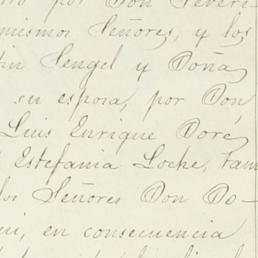 por Don Severe-
mismos Señores, y los
Hengel y Doña
su esposa, por Don
Luis Enrique Doré
Estefania Loche, tam
los Señores Don Do-
en consecuencia